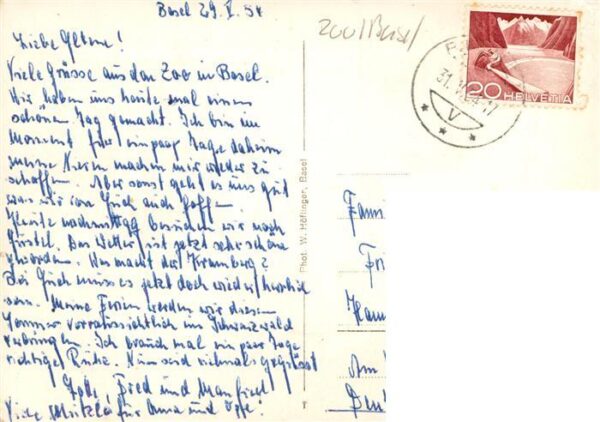 Basel 29.V.54
Zoo/Basel
Liebe Eltern!
Viele Grüsse aus dem Zoo in Basel.
Wir haben uns heute mal einen
schönen Tag gemacht. Ich bin im
Moment für ein paar Tage daheim
meine Nieren machen mir wieder zu
schaffen. Aber sonst geht es uns gut
was wir von Euch auch hoffen.
Heute nachmittag besuchen wir noch
Das Wetter ist jetzt sehr schön
geworden. Was macht der
Bei Euch muss es jetzt doch wieder herrlich
sein. Meine Ferien werden wir diesen
Sommer voraussichtlich im Schwarzwald
verbringen. Ich brauch mal ein paar Tage
richtige Ruhe. Nun seid vielmals gegrüsst
Fred und Manfred
Viele für Oma und Opa!
Phot. W. Höflinger, Basel
20 HELVETIA
31.V.54-17
V
Am